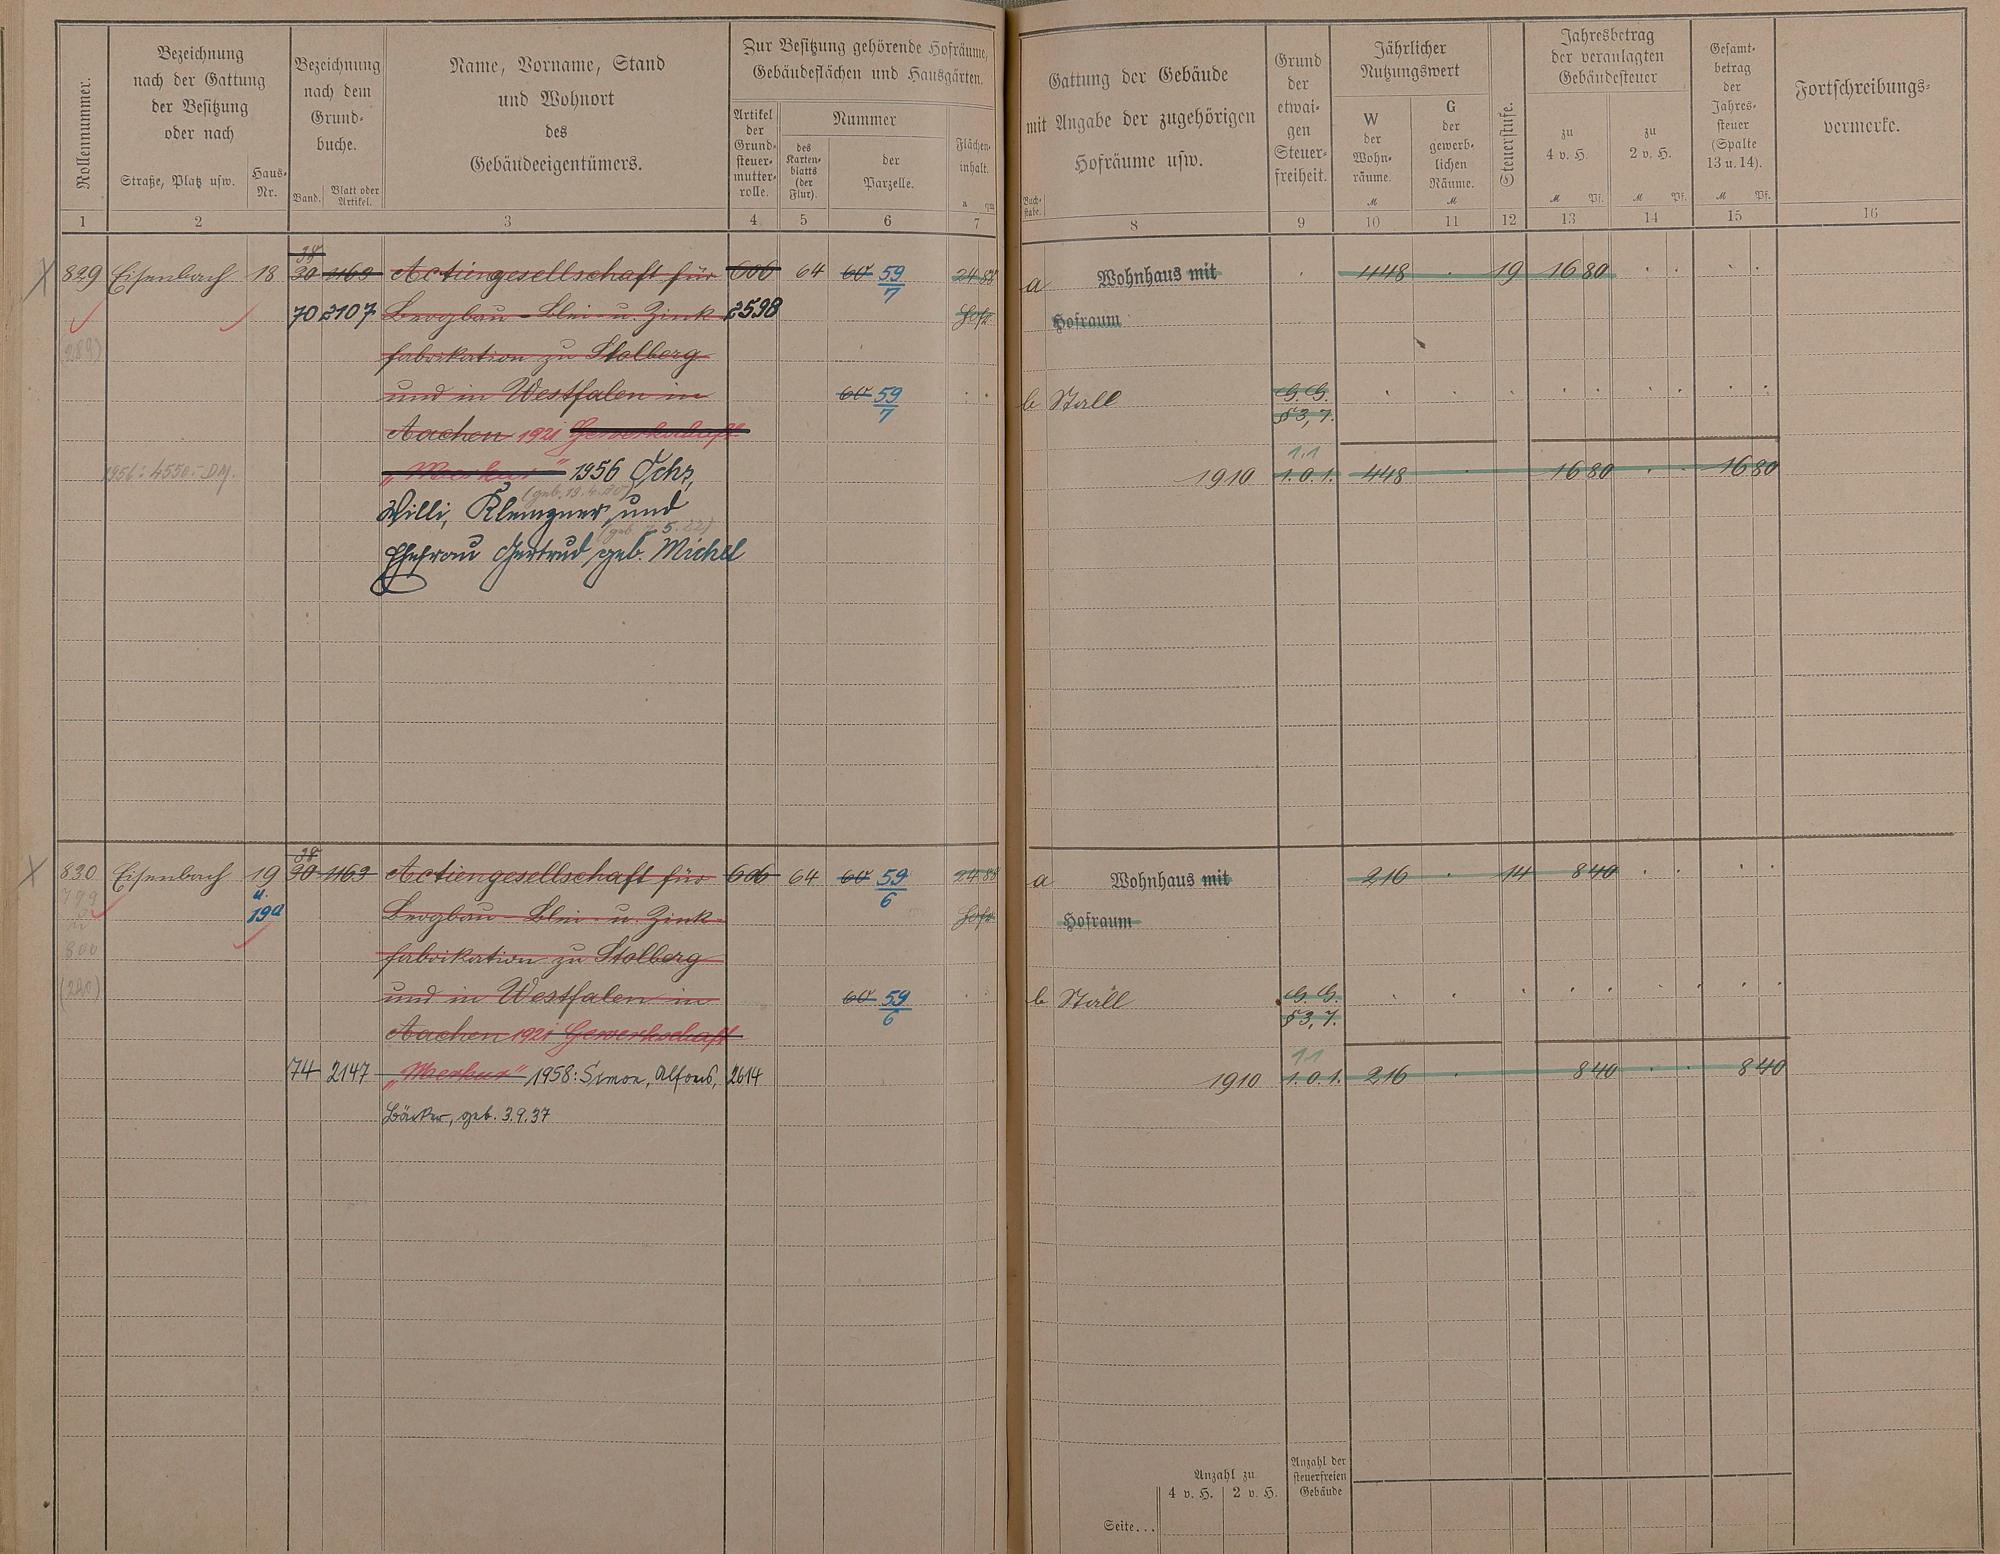 Rollennummer.
Bezeichnung
nach der Gattung
der Besitzung
oder nach
Straße, Platz usw.
Haus-
Nr.
Bezeichnung
nach dem
Grund-
buche.
Band.
Blatt oder
Artikel.
Name, Vorname, Stand
und Wohnort
des
Gebäudeeigentümers.
Zur Besitzung gehörende Hofräume,
Gebäudeflächen und Hausgärten.
Artikel
der
Grund-
steuer-
mutter-
rolle.
Nummer
des
Karten-
blatts
(der
Flur).
der
Parzelle.
Flächen-
inhalt.
a qm
Gattung der Gebäude
mit Angabe der zugehörigen
Hofräume usw.
Buch-
stabe.
Grund
der
etwai-
gen
Steuer-
freiheit.
Jährlicher
Nutzungswert
W
der
Wohn-
räume.
M
G
der
gewerb-
lichen
Räume.
M
Steuerstufe.
Jahresbetrag
der veranlagten
Gebäudesteuer
zu
4 v. H.
M Pf.
zu
2 v. H.
M Pf.
Gesamt-
betrag
der
Jahres-
steuer
(Spalte
13 u. 14).
M Pf.
Fortschreibungs-
vermerke.
1 2 3 4 5 6 7 8 9 10 11 12 13 14 15 16
38
829 Eisenbach 18 30 1163 Actiengesellschaft für 606 64 60 59/7 24 88 a Wohnhaus mit 448 19 16 80
70 2107 Bergbau - Blei- u. Zink- 2598 Hofr. Hofraum
(289)
fabrikation zu Stolberg
und in Westfalen in 60 59/7 b Stall G. G.
§ 3, 7.
Aachen 1921 Gewerkschaft
1956: 4550.- DM. „Merkur“ 1956 Ochs, 1910 1.0.1. 448 16 80 16 80
1.1
(geb. 19.4.20)
Willi, Klempner, und
Ehefrau Gertrud, geb. Michel
38
830 Eisenbach 19 30 1163 Actiengesellschaft für 606 64 60 59/6 24 88 a Wohnhaus mit 216 14 8 40
799
u.
800
u.
19a
Bergbau - Blei- u. Zink- Hofr. Hofraum
fabrikation zu Stolberg
und in Westfalen in 60 59/6 b Stall G. G.
§ 3, 7.
Aachen 1921 Gewerkschaft
1.1
74 2147 „Merkur“ 1958: Simon, Alfons, 2614 1910 1.0.1. 216 8 40 8 40
Bäcker, geb. 3.9.37
Anzahl zu
4 v. H. 2 v. H.
Anzahl der
steuerfreien
Gebäude
Seite...